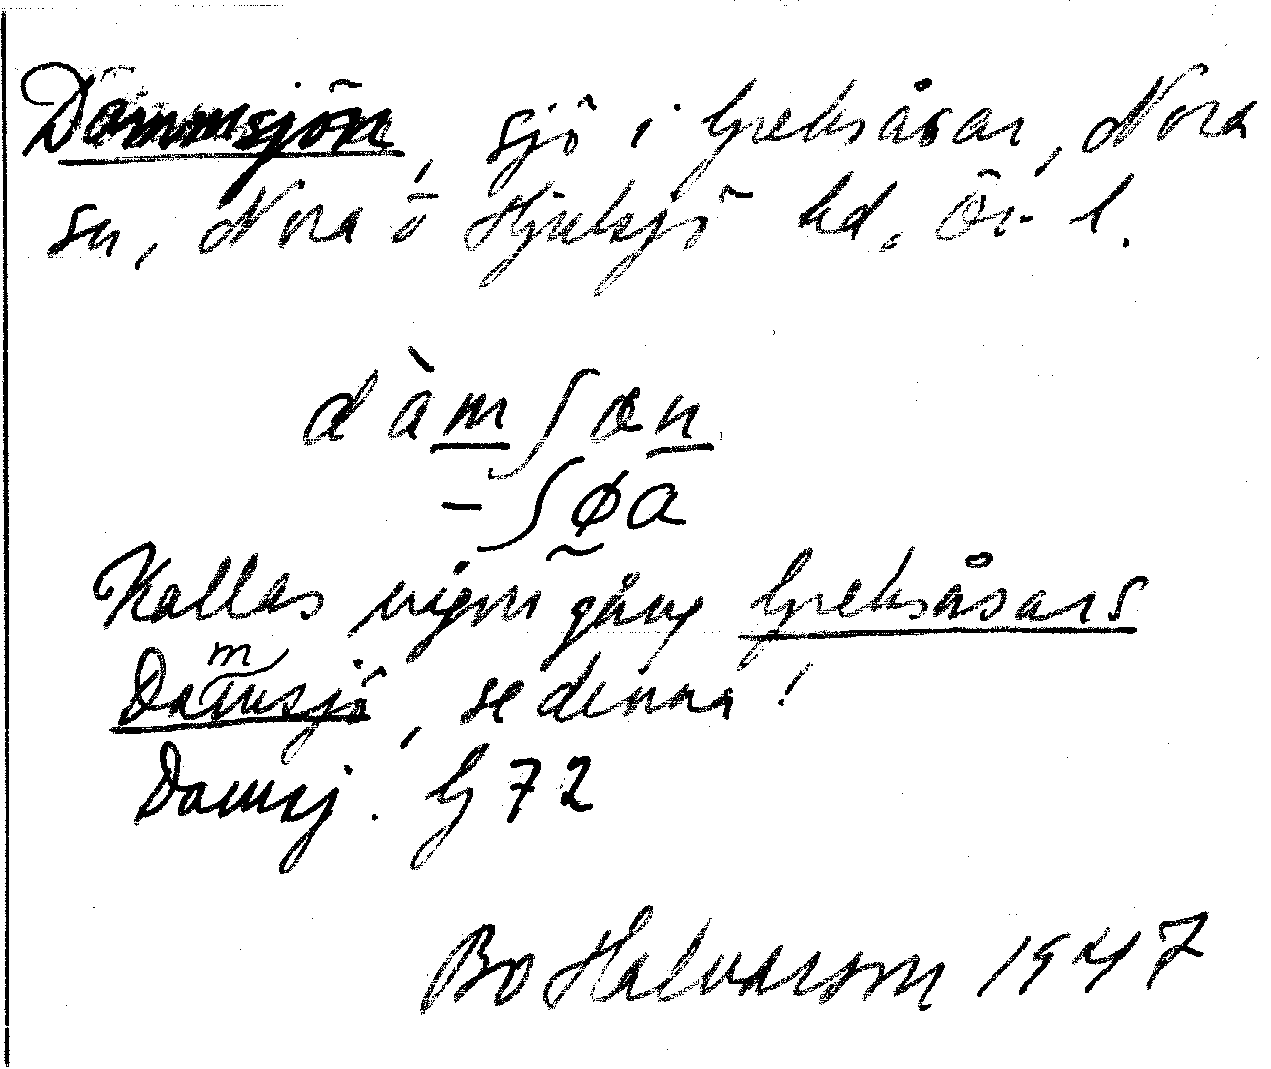 Dammsjön, sjö i Greksåsar, Nora
sn, Nora o Hjulsjö hd, Ör. l.
dàmʃøn
-ʃøa
Kallas någon gång Greksåsars
Dammsjö, se denna!
Damsj. G 72
Bo Halvarson 1947